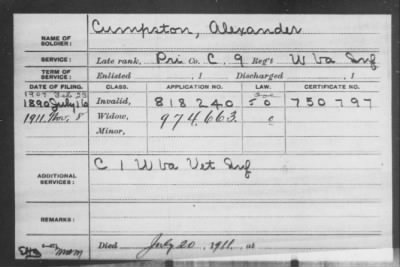 NAME OF SOLDIER: Cumpston, Alexander
SERVICE: Late rank, Pri Co. C, 9 Reg't W Va Inf
TERM OF SERVICE: Enlisted , 1 Discharged , 1
DATE OF FILING. CLASS. APPLICATION NO. LAW. CERTIFICATE NO.
1907 Feb 23
1890 July 16 Invalid, 818240 750797
1911. Nov. 8 Widow, 974.663.
Minor,
ADDITIONAL SERVICES: C 1 W Va Vet Inf
REMARKS:
Died July 20, 1911, at